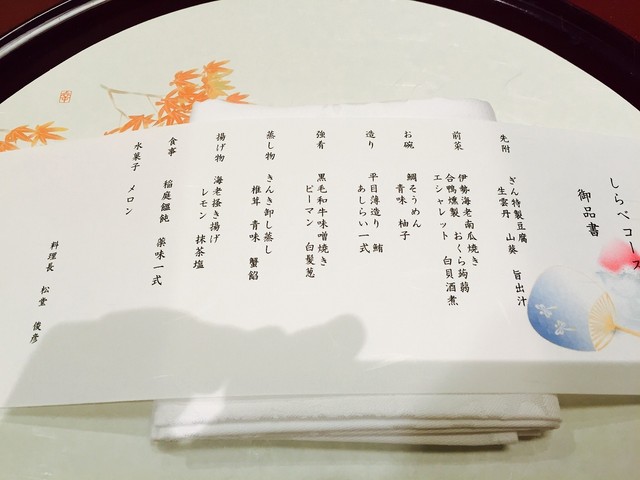 しらべコース
御品書
先附
ぎん特製豆腐 旨出汁
生雲丹 山葵
前菜
伊勢海老南瓜焼き
合鴨燻製 おくら蒟蒻
エシャレット 白貝酒煮
お碗
鯛そうめん
青味 柚子
造り
平目薄造り 鮪
あしらい一式
強肴
黒毛和牛味噌焼き
ピーマン 白髪葱
蒸し物
きんき卸し蒸し
椎茸 青味 蟹餡
揚げ物
海老掻き揚げ
レモン 抹茶塩
食事
稲庭饂飩 薬味一式
水菓子
メロン
料理長 松堂 俊彦